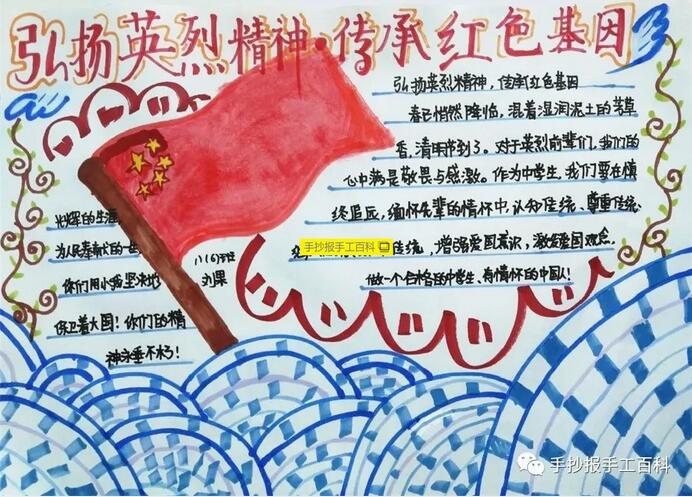 弘扬英烈精神·传承红色基因
弘扬英烈精神，传承红色基因
春已悄然降临，混着湿润泥土的芳草
香，清明节到了。对于英烈前辈们，我们的
心中满是敬畏与感激。作为中学生，我们要在慎
终追远，缅怀先辈的情怀中，认知传统、尊重传统、
传统，增强爱国意识，激发爱国观念。
做一个合格的中学生、有情怀的中国人！
光辉的生涯
为人民奉献的一
你们用小我坚决地
保卫着大国！你们的精
神永垂不朽！
八(6)班
刘果
手抄报手工百科
手抄报手工百科